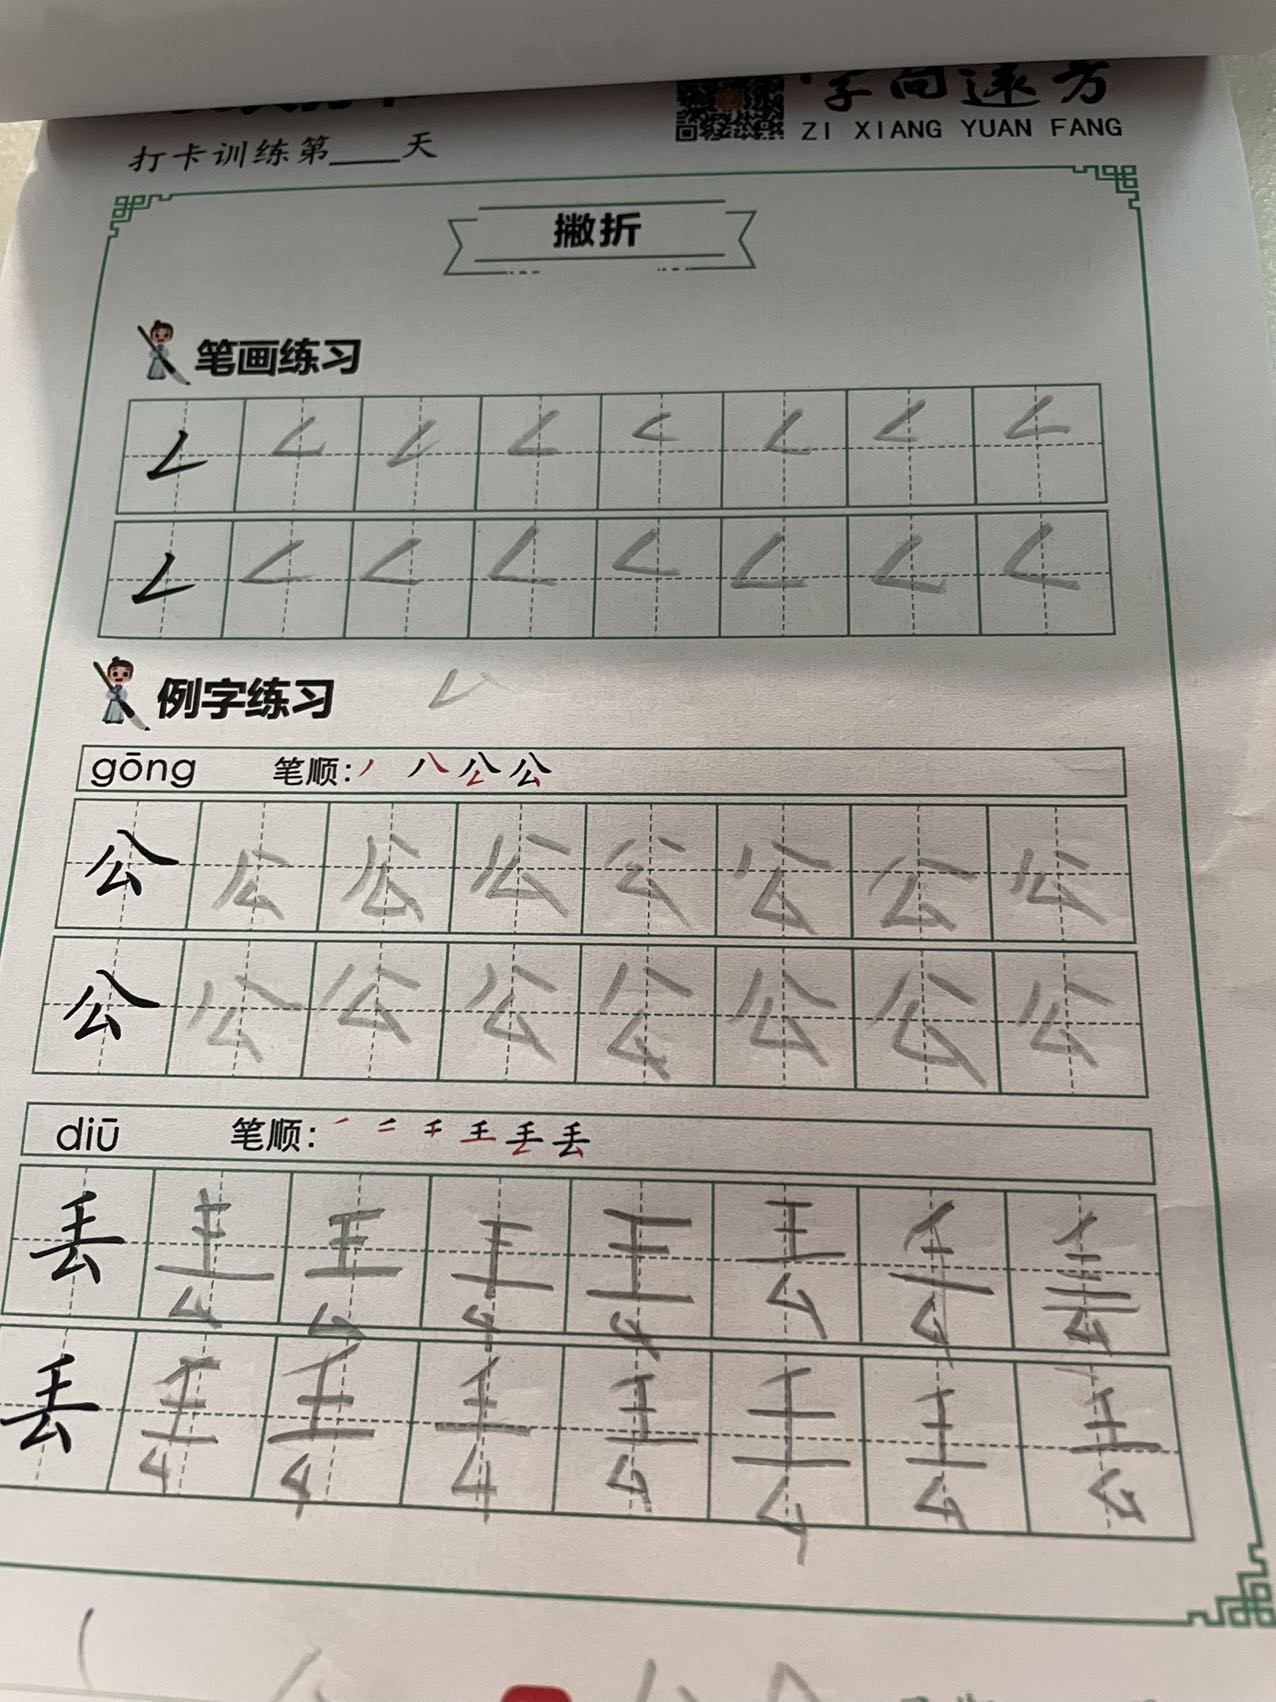 字向远方
ZI XIANG YUAN FANG
打卡训练第____天
撇折
笔画练习
𠃋 𠃋 𠃋 𠃋 𠃋 𠃋 𠃋 𠃋
𠃋 𠃋 𠃋 𠃋 𠃋 𠃋 𠃋 𠃋
例字练习 𠃋
gōng 笔顺: 丿 八 公 公
公 公 公 公 公 公 公 公
公 公 公 公 公 公 公 公
diū 笔顺: 丢 丢
丢 丢 丢 丢 丢 丢 丢 丢
丢 丢 丢 丢 丢 丢 丢 丢